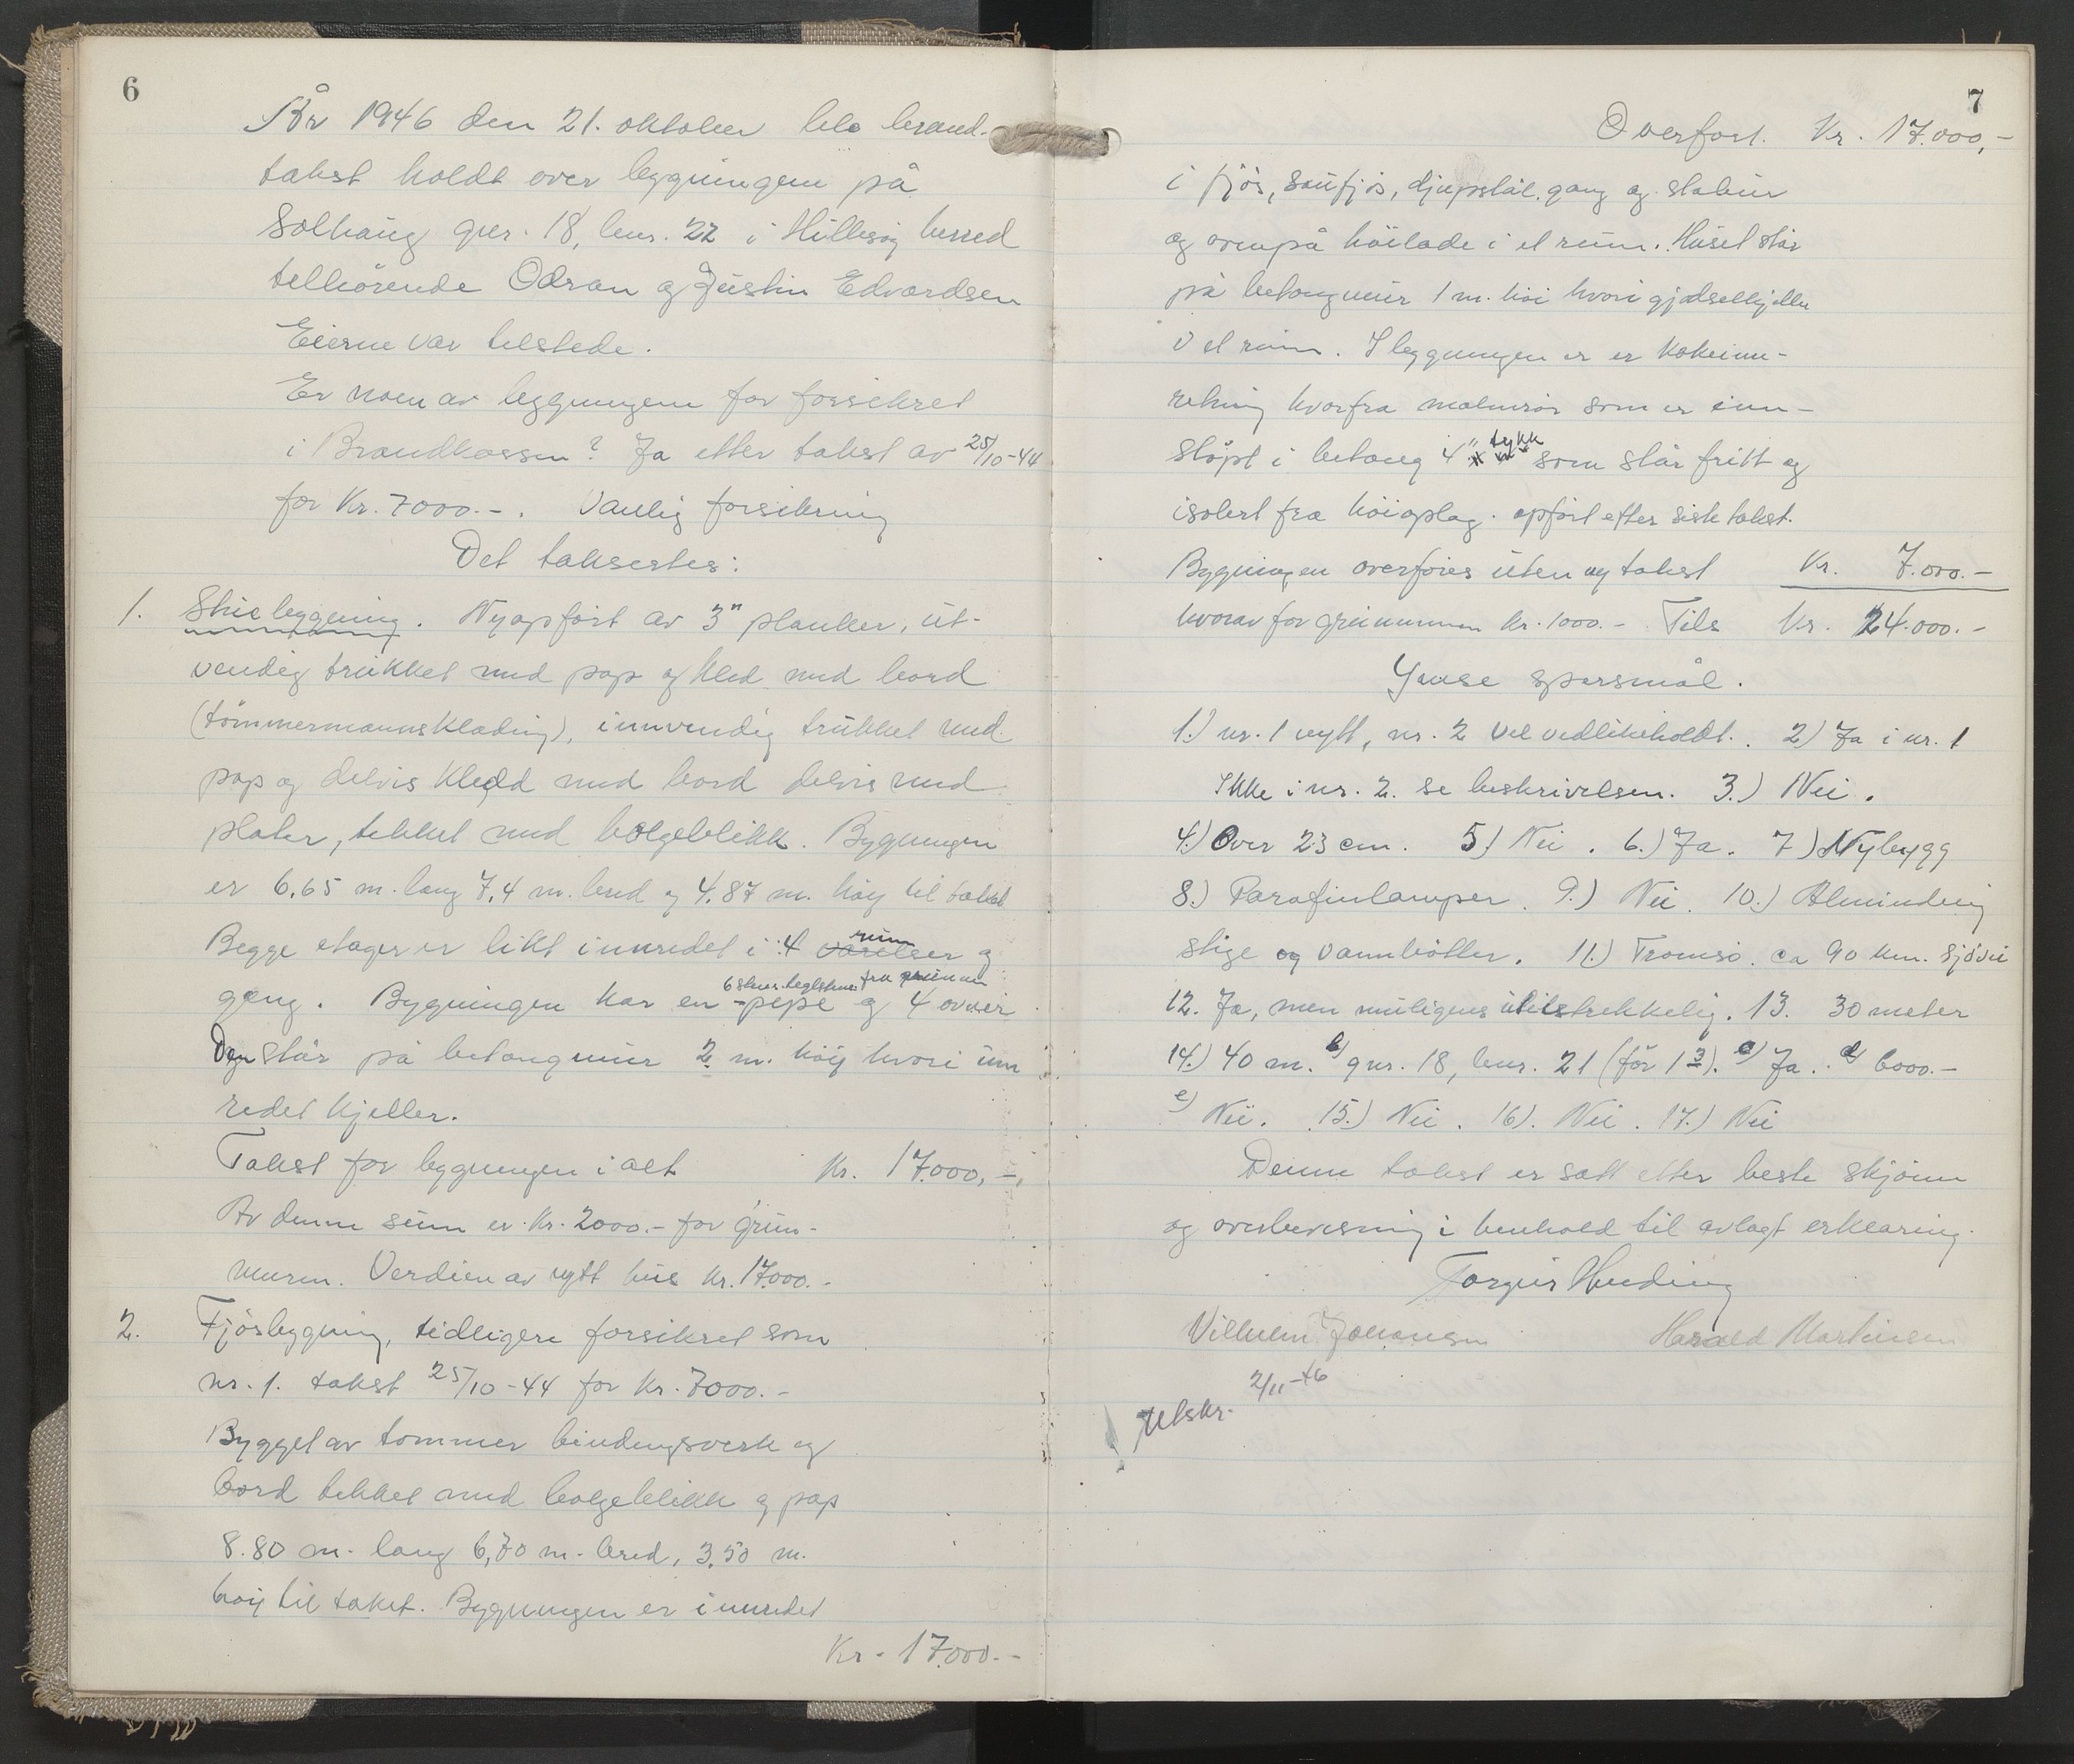 6
År 1946 den 21. oktober ble brand-
takst holdt over bygningene på
Solhaug gnr. 18, bnr. 22 i Hillesøy herred
tilhørende Odran og Justin Edvardsen
Eierne var tilstede.
Er noen av bygningene før forsikret
i Brandkassen? Ja etter takst av 25/10-44
for Kr. 7000.-. Vanlig forsikring
Det takseres:
1. Stuebygning. Nyoppført av 3" planker, ut-
vendig trukket med pap og kled med bord
(tömmermannsklædning), innvendig trukket med
pap og delvis kledd med bord delvis med
plater, tekket med bølgeblikk. Bygningen
er 6,65 m. lang 7,4 m. bred og 4,87 m. høy til taket
Begge etager er likt innredet i 4 rum og
gang. Bygningen har en 6 stens teglstens pipe fra grunnen og 4 ovner
Den står på betongmur 2 m. høy hvori inn
redet kjeller.
Takst for bygningen i alt Kr. 17.000,-
Av denne sum er Kr. 2000.- for grun-
muren. Verdien av nytt hus Kr. 17.000.-
2. Fjøsbygning, tidligere forsikret som
nr. 1. takst 25/10-44 for Kr. 7000.-
Bygget av tømmer bindingsverk og
bord tekket med bølgeblikk og pap
8.80 m. lang 6,70 m. bred, 3,50 m.
høy til taket. Bygningen er innredet
Kr. 17.000.-
7
Overført. Kr. 17.000,-
i fjös, saufjös, djupstal, gang og stabur
og ovenpå höilade i et rum. Huset står
på betongmur 1 m. höi hvori gjødselkjeller
i et rum. I bygningen er er kokeinn-
retning hvorfra malmrör som er inn-
støpt i betong 4" tykk som står fritt og
isolert fra höioplag. opført efter siste takst.
Bygningen overføres uten ny takst Kr. 7.000.-
hvorav for grunmuren kr. 1000.- Tils Kr. 24.000.-
Ymse spørsmål.
1.) nr. 1 nytt, nr. 2 vel vedlikeholdt. 2) Ja i nr. 1
Ikke i nr. 2. se beskrivelsen. 3.) Nei.
4.) Over 23 cm. 5) Nei. 6.) Ja. 7) Nybygg
8.) Parafinlamper. 9.) Nei. 10.) Alminnelig
stige og vannbøtter. 11.) Tromsö. ca 90 km. sjövei
12. Ja, men muligens utilstrekkelig. 13. 30 meter
14.) 40 m. b) gnr. 18, bnr. 21 (för 13). c) Ja. d) 6000.-
e) Nei. 15.) Nei. 16). Nei. 17.) Nei
Denne takst er satt etter beste skjönn
og overbevisning i henhold til avlagt erklæring.
Torgeir Hunding
Vilhelm Johansen Harald Martinsen
Utskr. 2/11-46